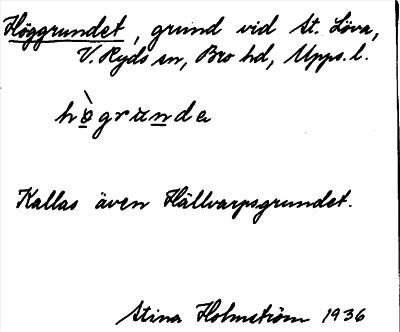 Höggrundet, grund vid St. Löva,
V. Ryds sn, Bro hd, Upps. l.
hò̱gruṉda
Kallas även Hällvarpsgrundet.
Stina Holmström 1936